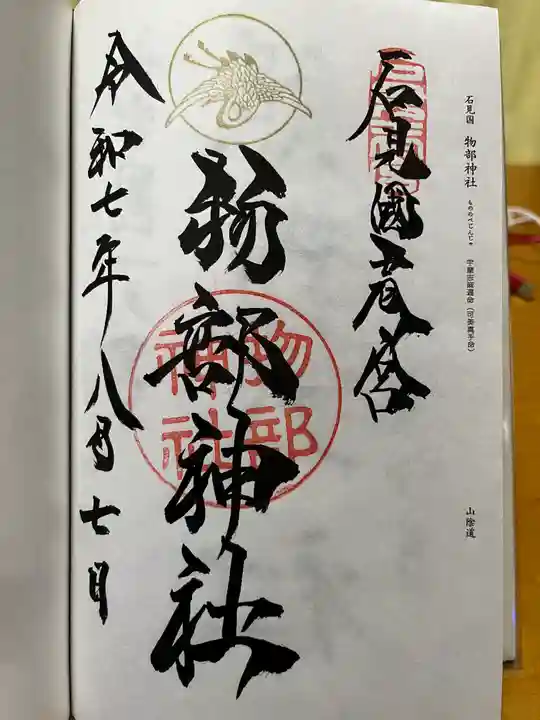 石見国 物部神社 もののべじんじゃ 宇摩志麻遅命（可美真手命）
山陰道
石見國一宮
物部神社
物部神社
令和七年八月七日